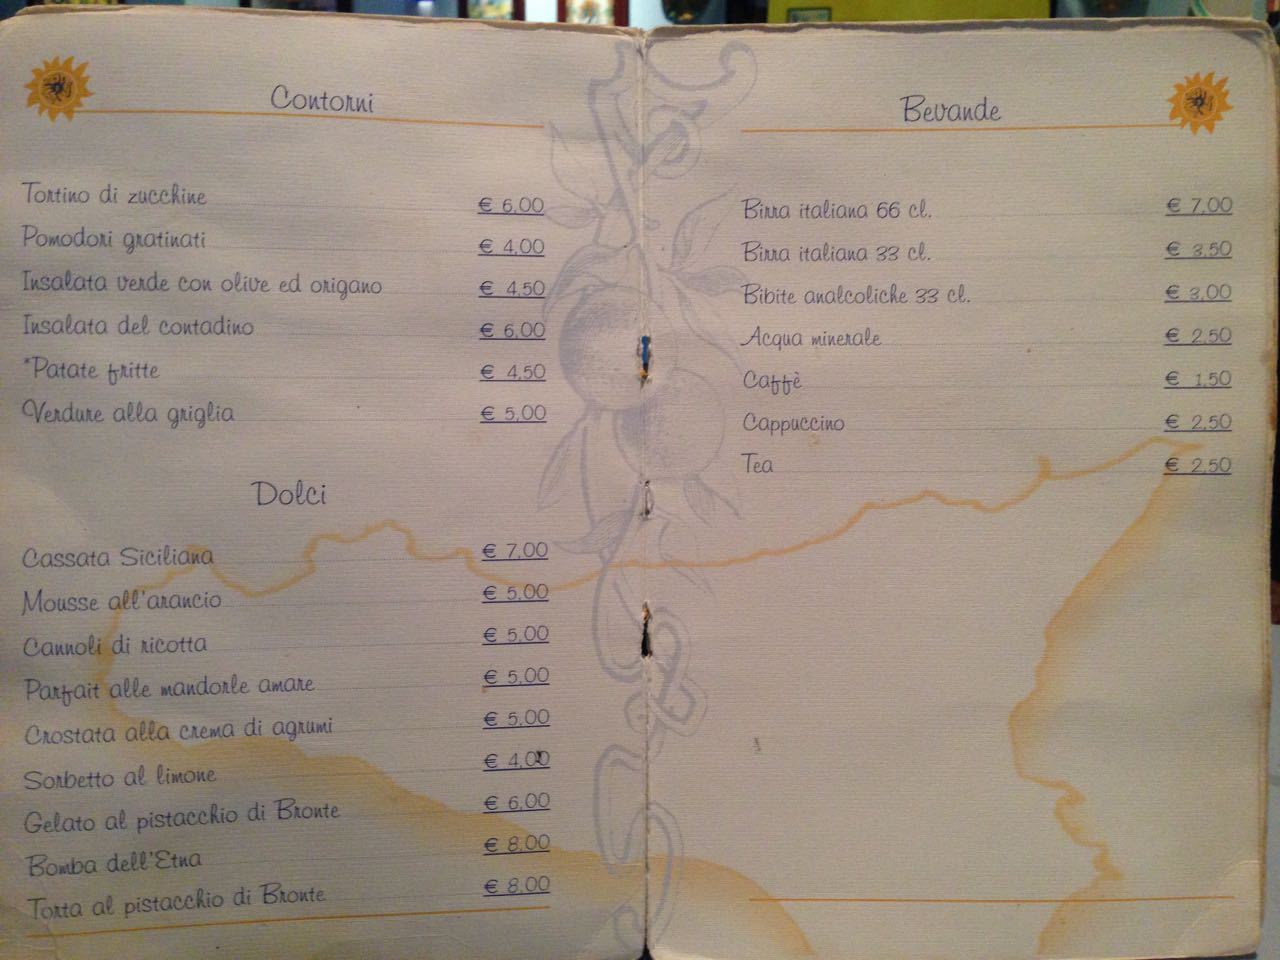 Contorni
Tortino di zucchine € 6,00
Pomodori gratinati € 4,00
Insalata verde con olive ed origano € 4,50
Insalata del contadino € 6,00
*Patate fritte € 4,50
Verdure alla griglia € 5,00
Dolci
Cassata Siciliana € 7,00
Mousse all'arancio € 5,00
Cannoli di ricotta € 5,00
Parfait alle mandorle amare € 5,00
Crostata alla crema di agrumi € 5,00
Sorbetto al limone € 4,00
Gelato al pistacchio di Bronte € 6,00
Bomba dell'Etna € 8,00
Torta al pistacchio di Bronte € 8,00
Bevande
Birra italiana 66 cl. € 7,00
Birra italiana 33 cl. € 3,50
Bibite analcoliche 33 cl. € 3,00
Acqua minerale € 2,50
Caffè € 1,50
Cappuccino € 2,50
Tea € 2,50